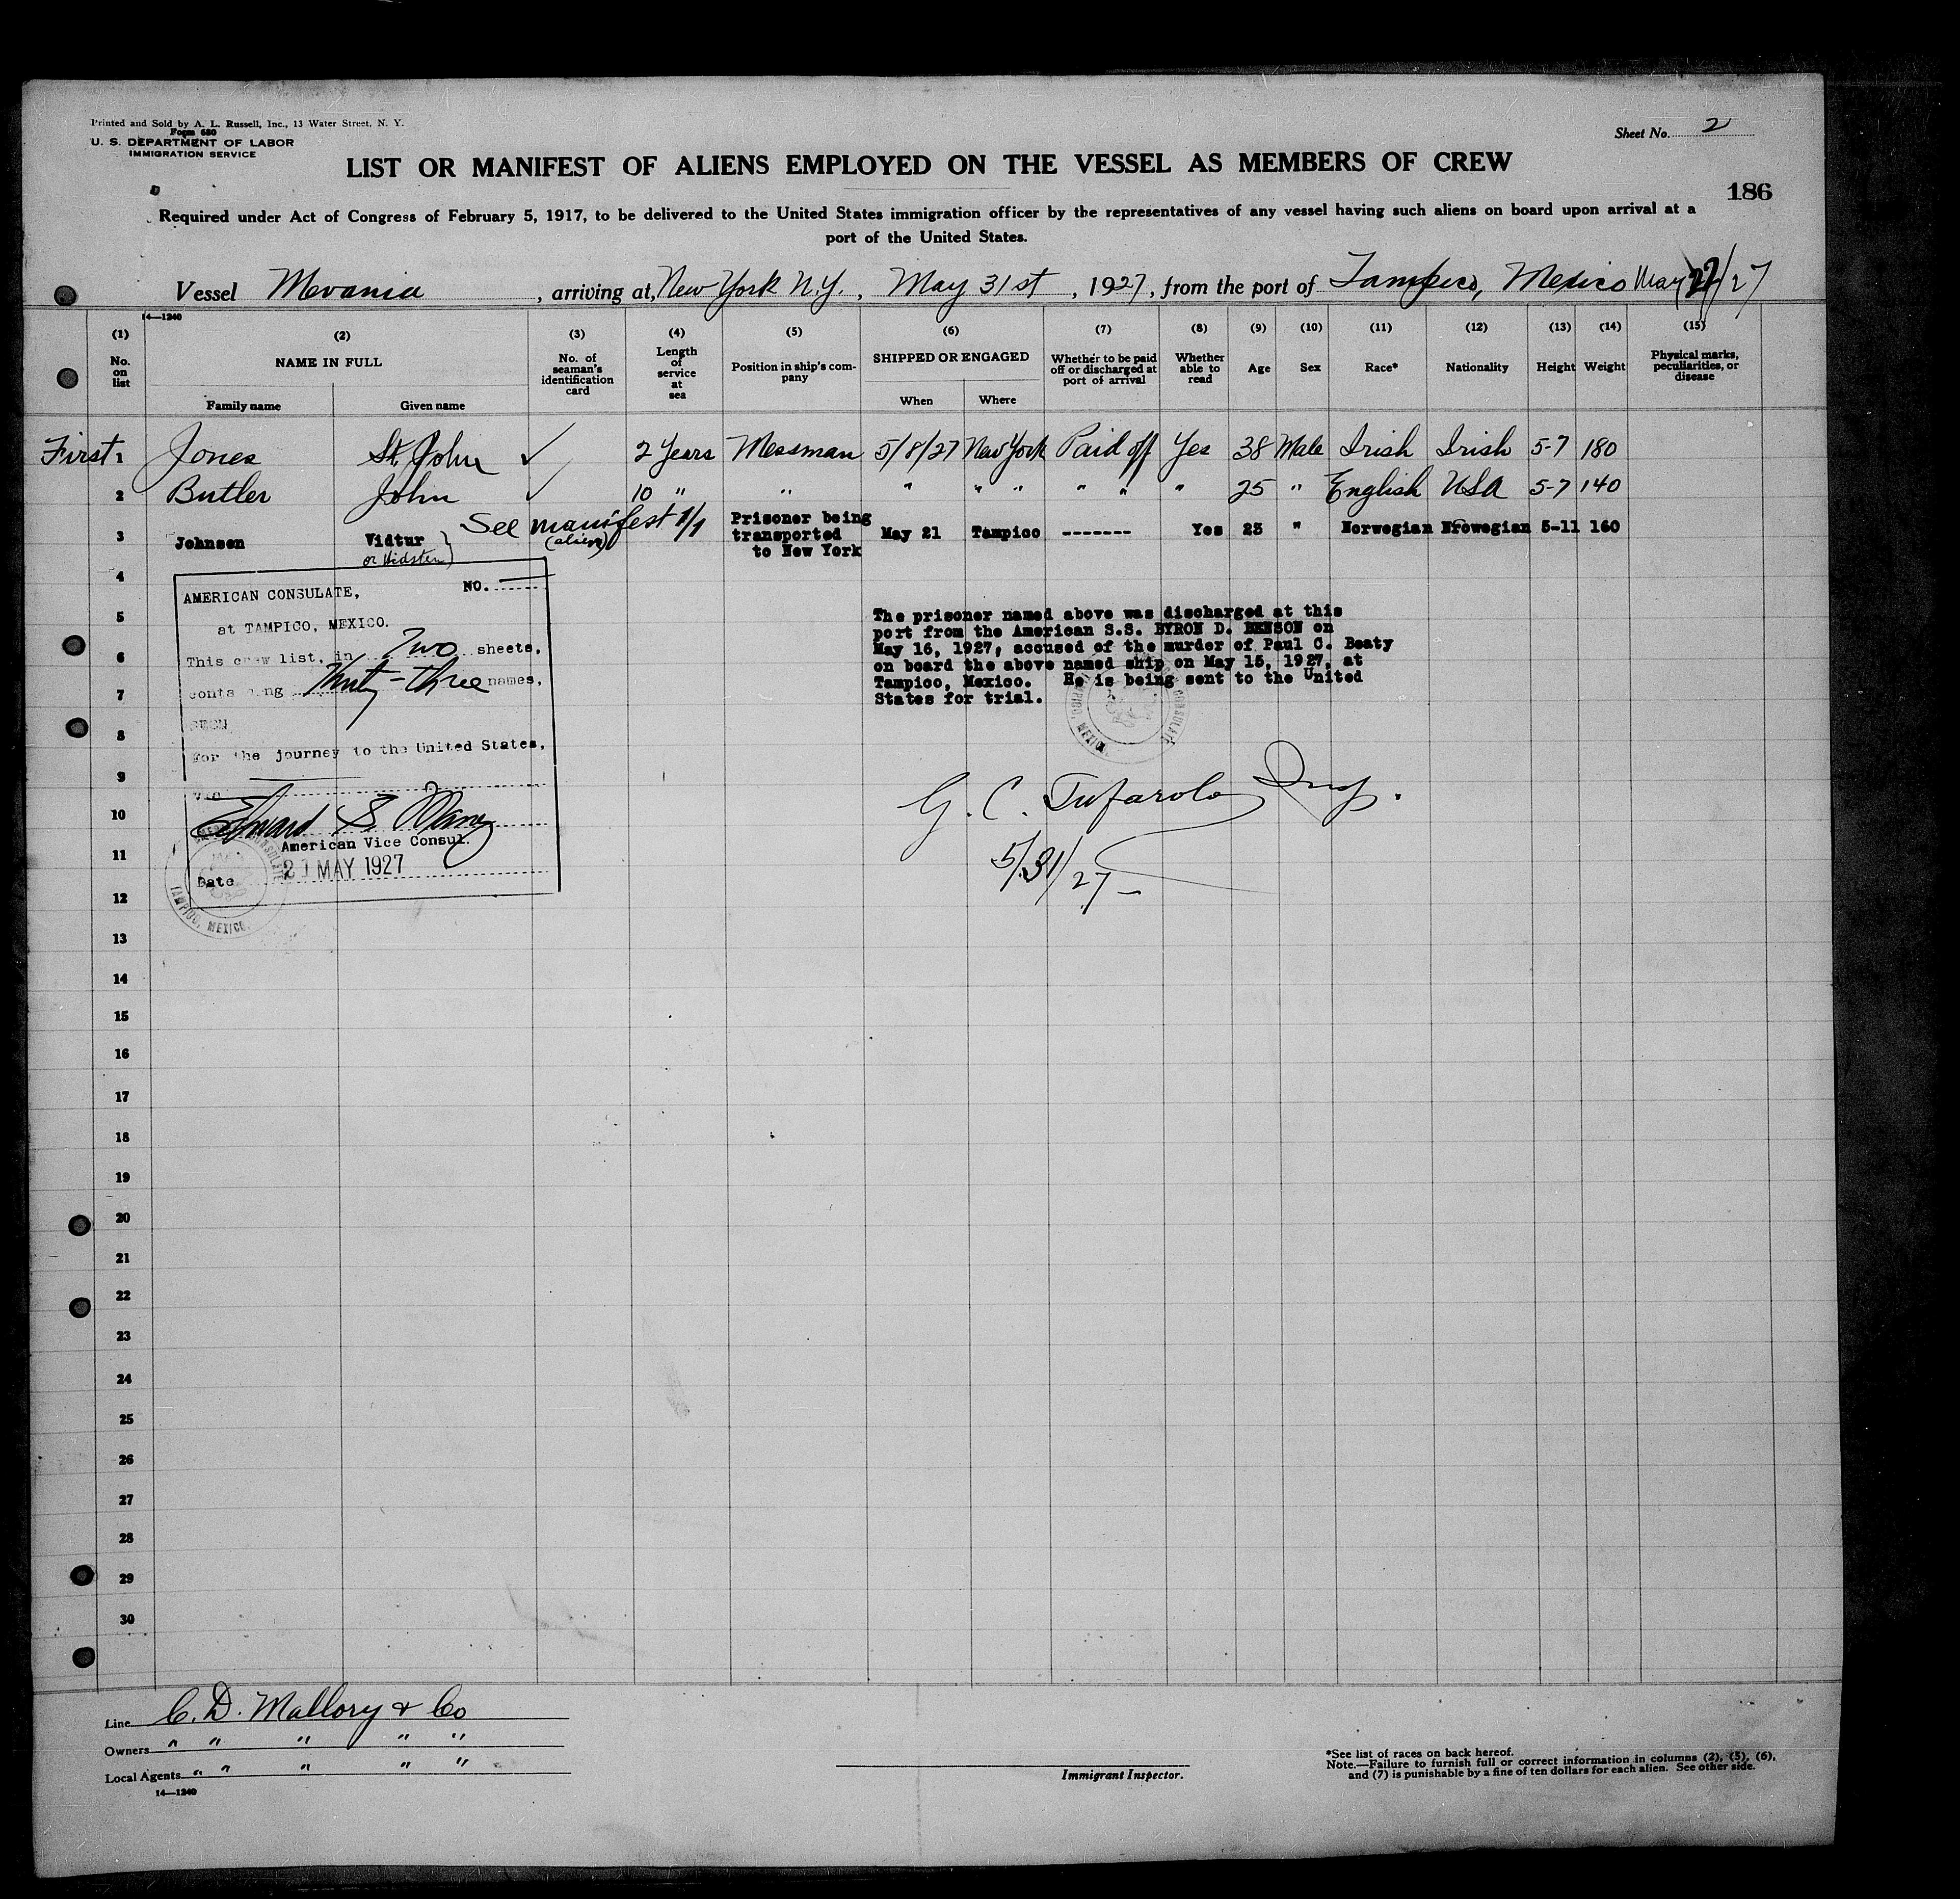 Printed and Sold by A. L. Russell, Inc., 13 Water Street, N. Y.
Form 680
U. S. DEPARTMENT OF LABOR
IMMIGRATION SERVICE
Sheet No. 2
LIST OR MANIFEST OF ALIENS EMPLOYED ON THE VESSEL AS MEMBERS OF CREW
186
Required under Act of Congress of February 5, 1917, to be delivered to the United States immigration officer by the representatives of any vessel having such aliens on board upon arrival at a
port of the United States.
Vessel Mevania, arriving at, New York N.Y., May 31st, 1927, from the port of Tampico, Mexico May 22/27
14—1240
(1) (2) (3) (4) (5) (6) (7) (8) (9) (10) (11) (12) (13) (14) (15)
No. on list
NAME IN FULL
Family name
Given name
No. of seaman's identification card
Length of service at sea
Position in ship's company
SHIPPED OR ENGAGED
When
Where
Whether to be paid off or discharged at port of arrival
Whether able to read
Age
Sex
Race*
Nationality
Height
Weight
Physical marks, peculiarities, or disease
First 1 Jones St. John ✓ 2 Years Messman 5/8/27 New York Paid off Yes 38 Male Irish Irish 5-7 180
2 Butler John ✓ 10 " " " " " " " " 25 " English USA 5-7 140
3 Johnsen Vidtur or Vidsten } See manifest 1/1 (alien) Prisoner being transported to New York May 21 Tampico ------- Yes 23 " Norwegian Nrowegian 5-11 160
4
5
6
7
8
9
10
11
12
13
14
15
16
17
18
19
20
21
22
23
24
25
26
27
28
29
30
AMERICAN CONSULATE, NO.
at TAMPICO, MEXICO.
This crew list, in Two sheets,
containing Thirty-three names,
SEEN
For the journey to the United States,
Edward S.
American Vice Consul.
Date MAY 1927
CONSULATE
TAMPICO, MEXICO.
The prisoner named above was discharged at this
port from the American S.S. BYRON D. BENSON on
May 16, 1927, accused of the murder of Paul C. Beaty
on board the above named ship on May 15, 1927, at
Tampico, Mexico. He is being sent to the United
States for trial.
CONSULATE
TAMPICO, MEXICO.
G. C. Tufarolo Insp.
5/31/27
Line C. D. Mallory & Co
Owners " " " " "
Local Agents " " " " "
14—1240
Immigrant Inspector.
*See list of races on back hereof.
Note.—Failure to furnish full or correct information in columns (2), (5), (6),
and (7) is punishable by a fine of ten dollars for each alien. See other side.